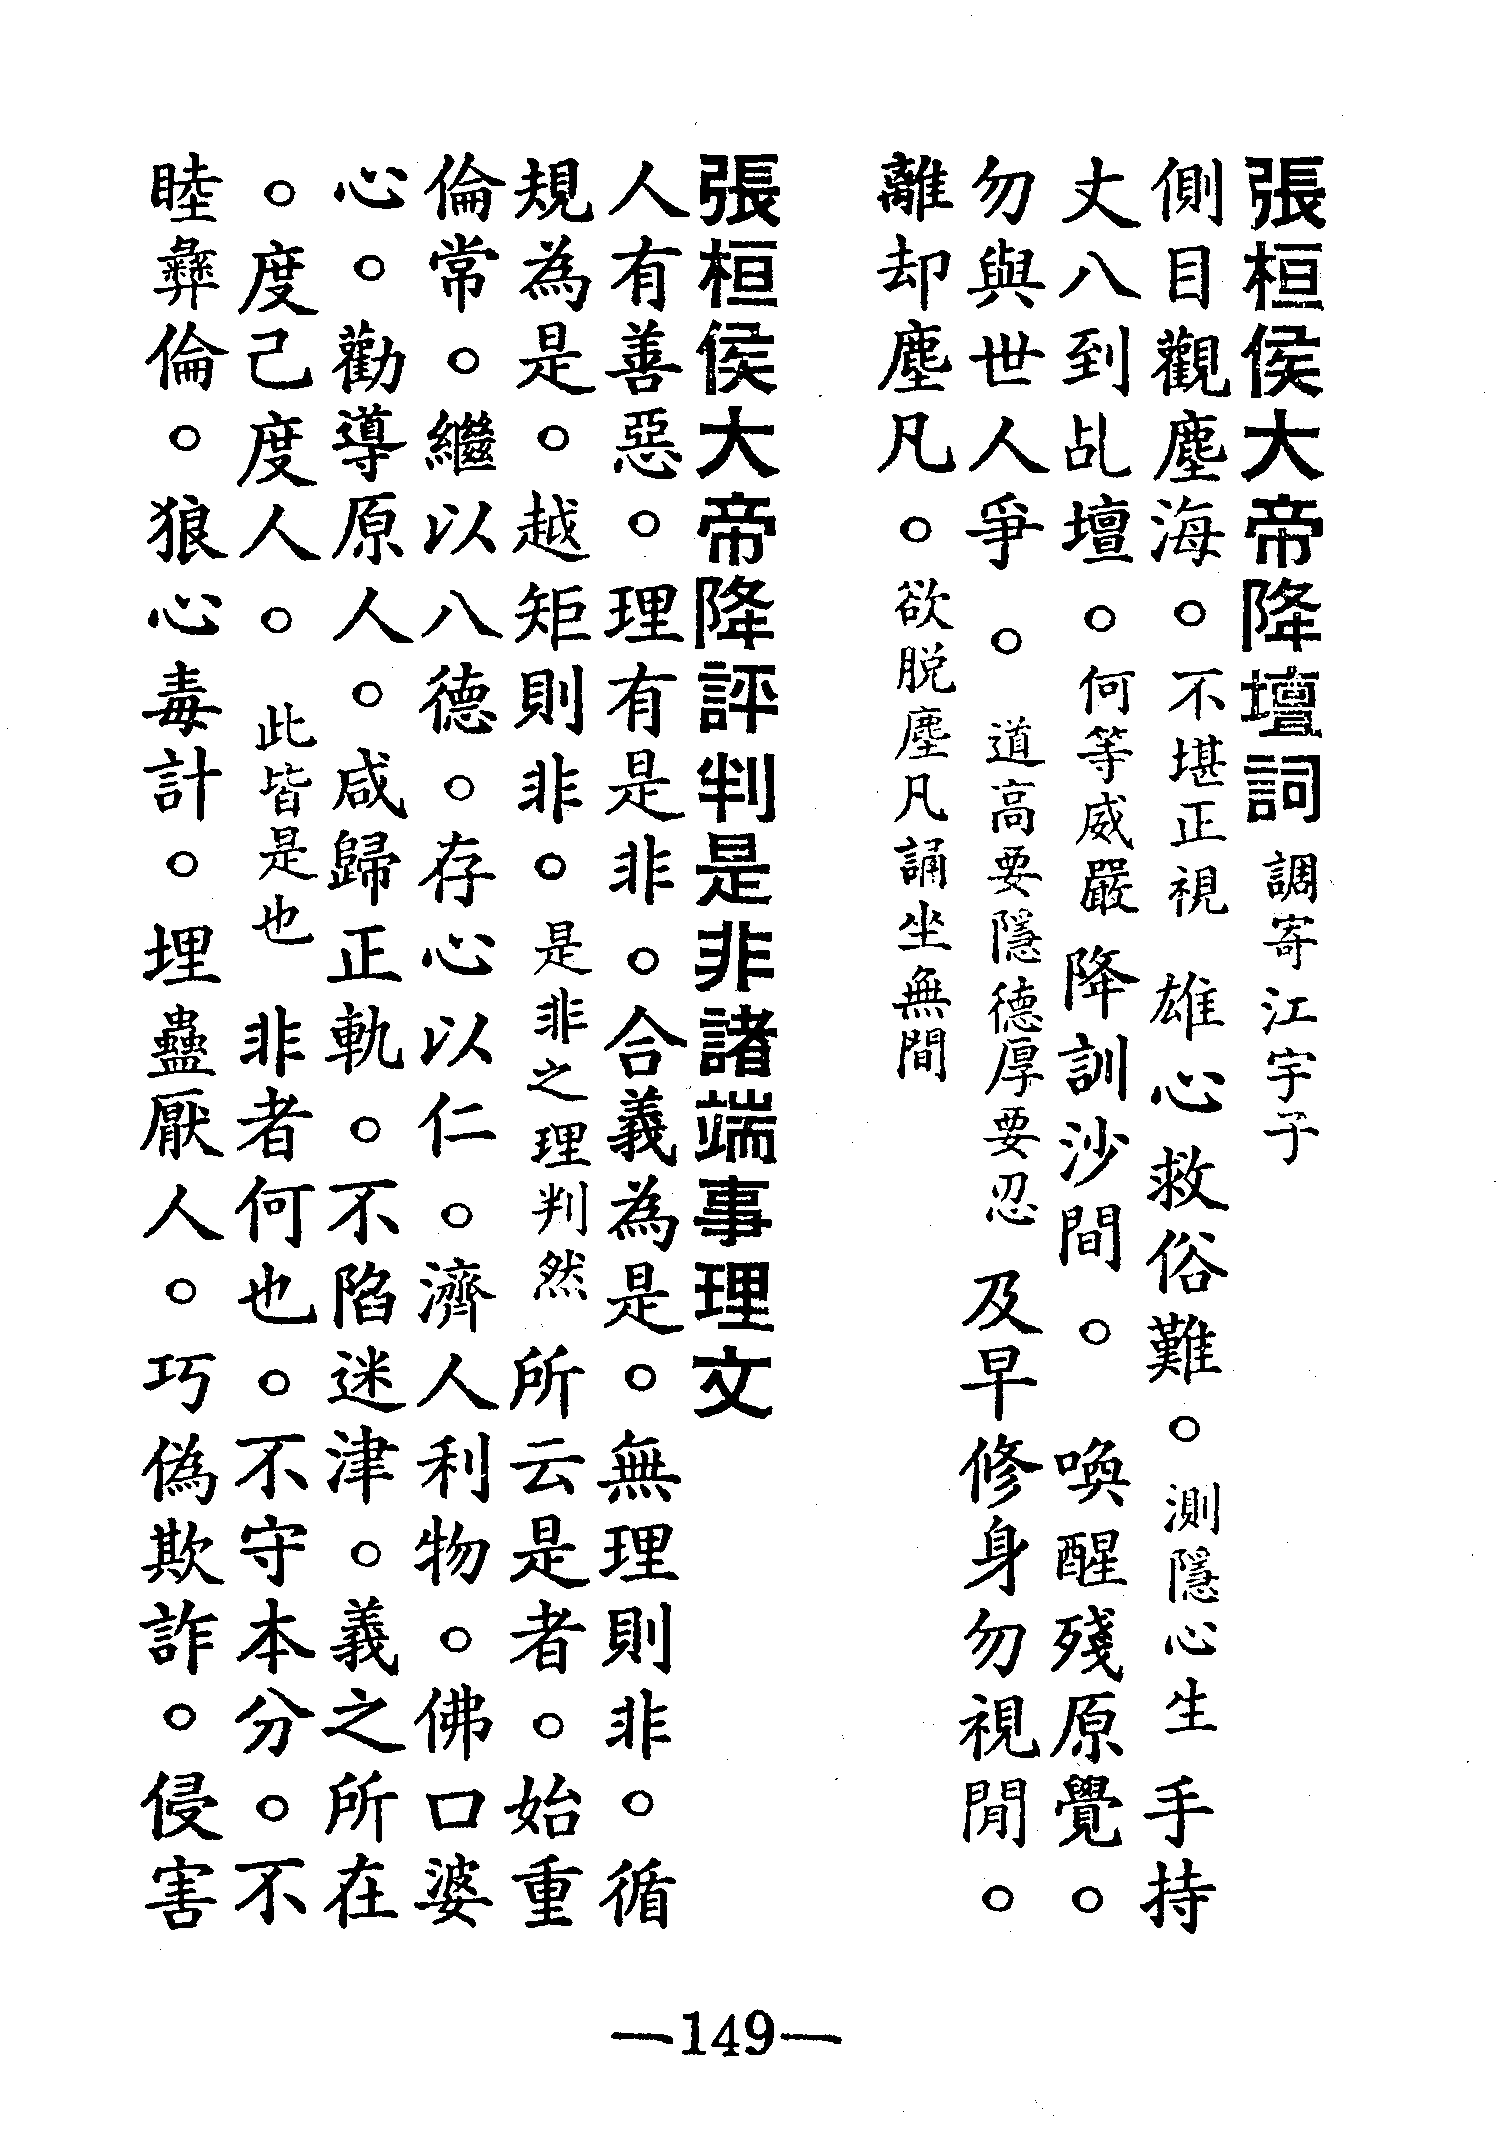 張桓侯大帝降壇詞 調寄江宇子
側目觀塵海。不堪正視 雄心救俗難。測隱心生 手持
丈八到乩壇。何等威嚴 降訓沙間。 喚醒殘原覺。
勿與世人爭。 道高要隱德厚要忍 及早修身勿視閒。
離却塵凡。欲脱塵凡誦坐無間
張桓侯大帝降評判是非諸端事理文
人有善惡。理有是非。合義為是。無理則非。循
規為是。越矩則非。是非之理判然 所云是者。始重
倫常。繼以八德。存心以仁。濟人利物。佛口婆
心。勸導原人。咸歸正軌。不陷迷津。義之所在
。度己度人。 此皆是也 非者何也。不守本分。不
睦彝倫。狼心毒計。埋蠱厭人。巧偽欺詐。侵害
—149—